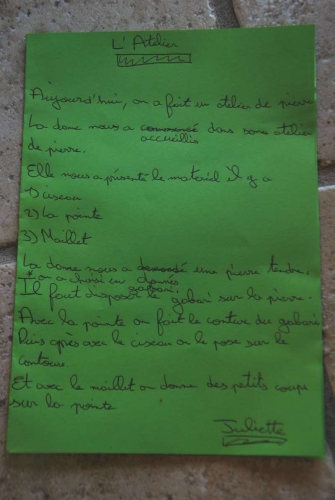 L'Atelier
Aujourd'hui, on a fait un atelier de pierre
La dame nous a accueillis dans son atelier
de pierre.
Elle nous a présenté le matériel il y a
1) ciseau
2) La pointe
3) Maillet
La dame nous a donnés une pierre tendre,
on a choisi un gabari,
Il faut disposé le gabari sur la pierre.
Avec la pointe on fait le contour du gabari
Puis apres avec le ciseau on le pose sur le
contour.
Et avec le maillet on donne des petits coups
sur la pointe
Juliette